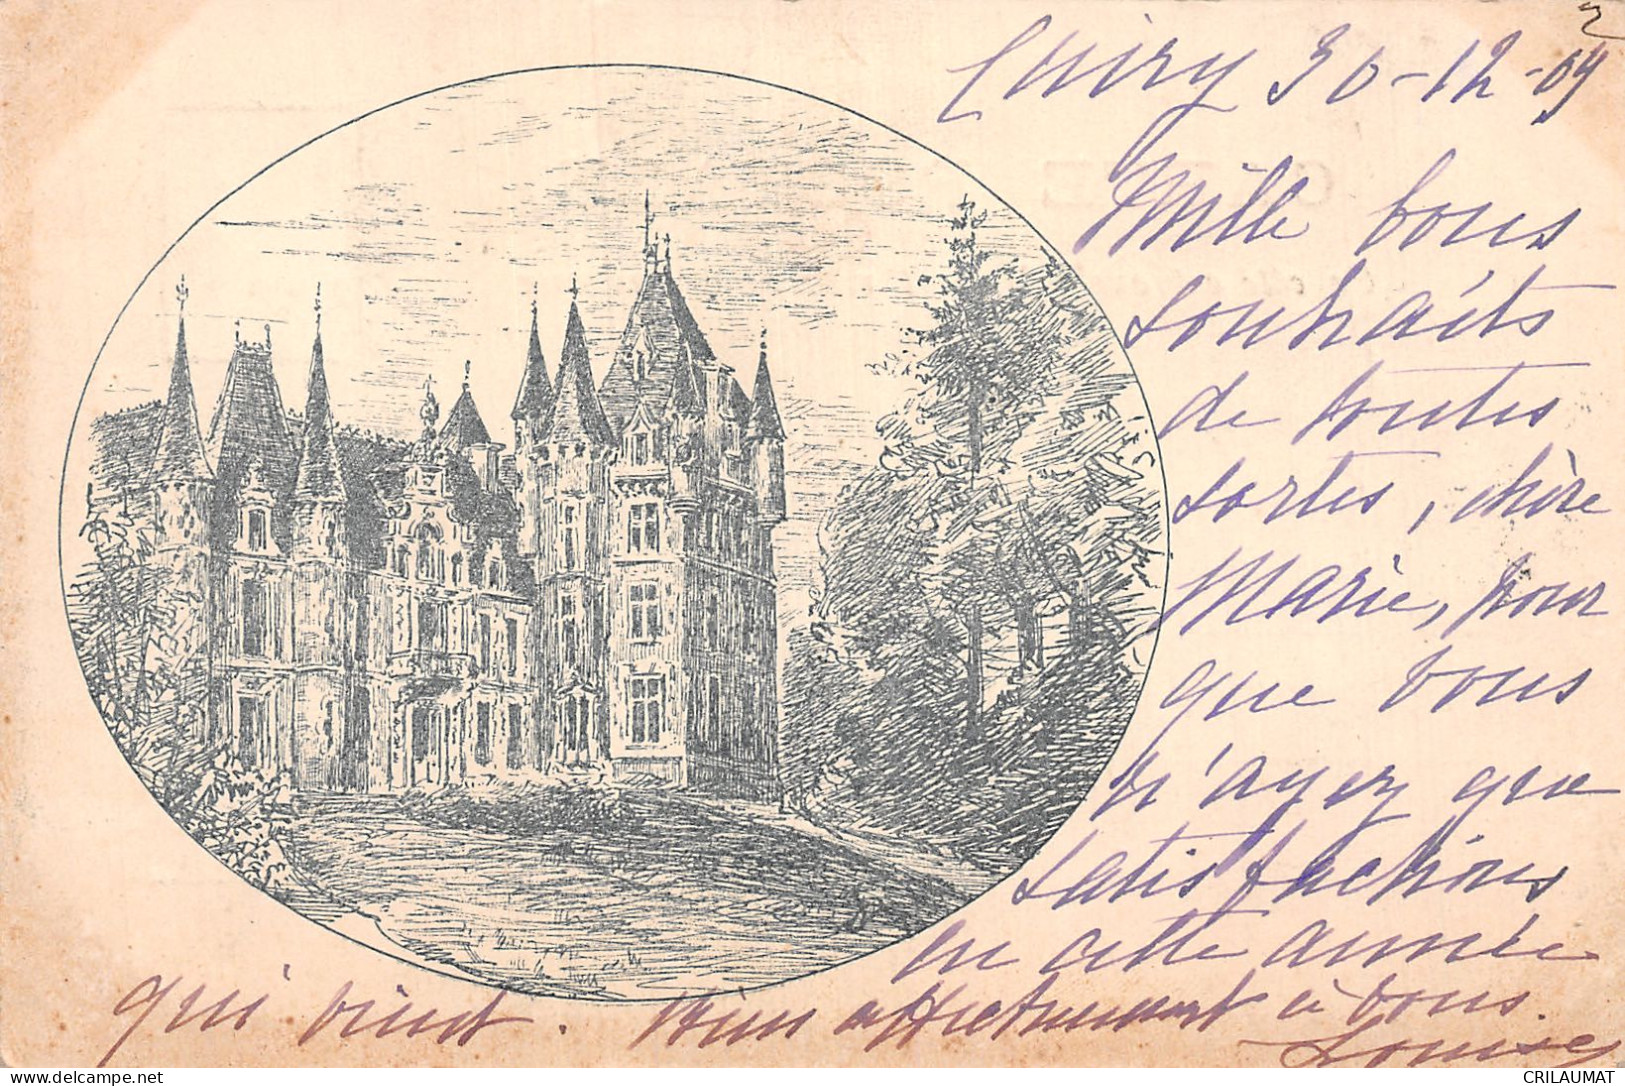 2
Cuiry 30-12-04
Mille bons
souhaits
de toutes
sortes, chère
Marie, pour
que vous
n'ayez que
satisfactions
en cette année
qui vient. Bien affectueusement à vous.
Louise
CRILAUMAT